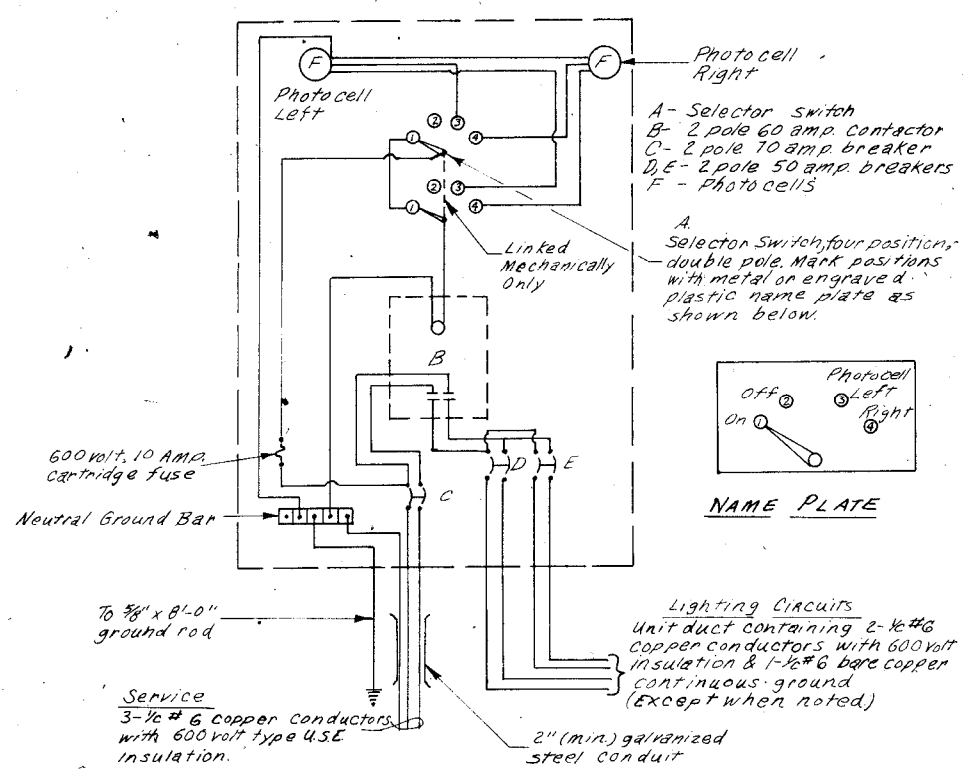 F
F
Photocell
Left
Photocell
Right
A- Selector switch
B- 2 pole 60 amp. contactor
C- 2 pole 70 amp. breaker
D,E- 2 pole 50 amp. breakers
F - Photocells
2 3
1 4
2 3
1 4
Linked
Mechanically
Only
A.
Selector Switch, four position,
double pole. Mark positions
with metal or engraved
plastic name plate as
shown below.
B
Photocell
Off 2 3 Left
Right
On 1 4
NAME PLATE
600 volt, 10 Amp.
cartridge fuse
C
D
E
Neutral Ground Bar
To 5/8" x 8'-0"
ground rod
Service
3-1/c # 6 copper conductors
with 600 volt type U.S.E.
insulation.
2" (min.) galvanized
steel conduit
Lighting Circuits
Unit duct containing 2-1/c #6
copper conductors with 600 volt
insulation & 1-1/c #6 bare copper
continuous ground
(Except when noted.)